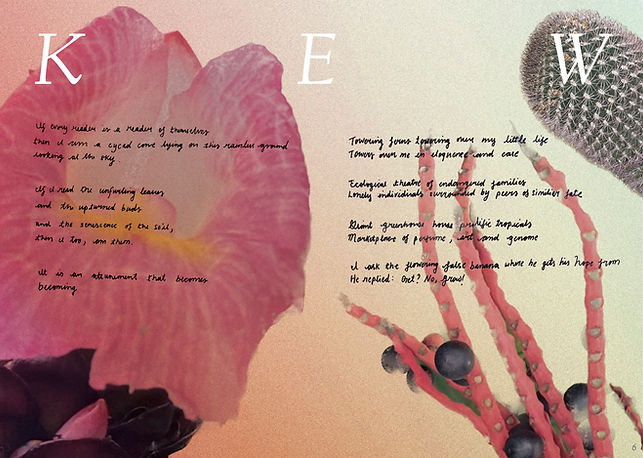 K E W
If every reader is a reader of themselves
then I am a cycad cone lying on this rainless ground
looking at the sky
If I read the unfurling leaves
and the upturned buds
and the senescence of the soil,
then I too, am them.
It is an attunement that becomes
becoming
Towering ferns towering over my little life
Towers over me in eloquence and care
Ecological theatre of endangered families
Lonely individuals surrounded by peers of similar fate
Giant greenhouse house prolific tropicals
Marketplace of perfume, art and genome
I ask the flowering false banana where he gets his hope from
He replied: Get? No, grow!
6